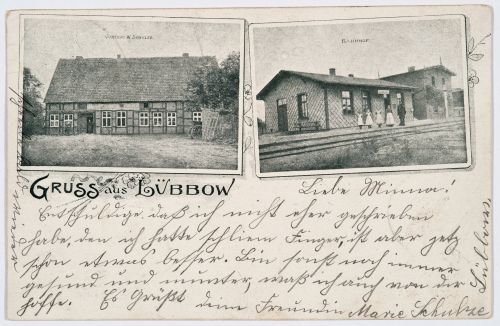 BAHNHOF.
GRUSS aus LÜBBOW
Liebe Minna!
Entschuldige daß ich nicht eher geschrieben
habe, den ich hatte schliem Finger, ist aber jetz
schon etwas besser. Bin sonst noch immer
gesund und munter, waß ich auch von dir
hoffe. Es Grüßt deine Freundin Marie Schulze
Lübbow